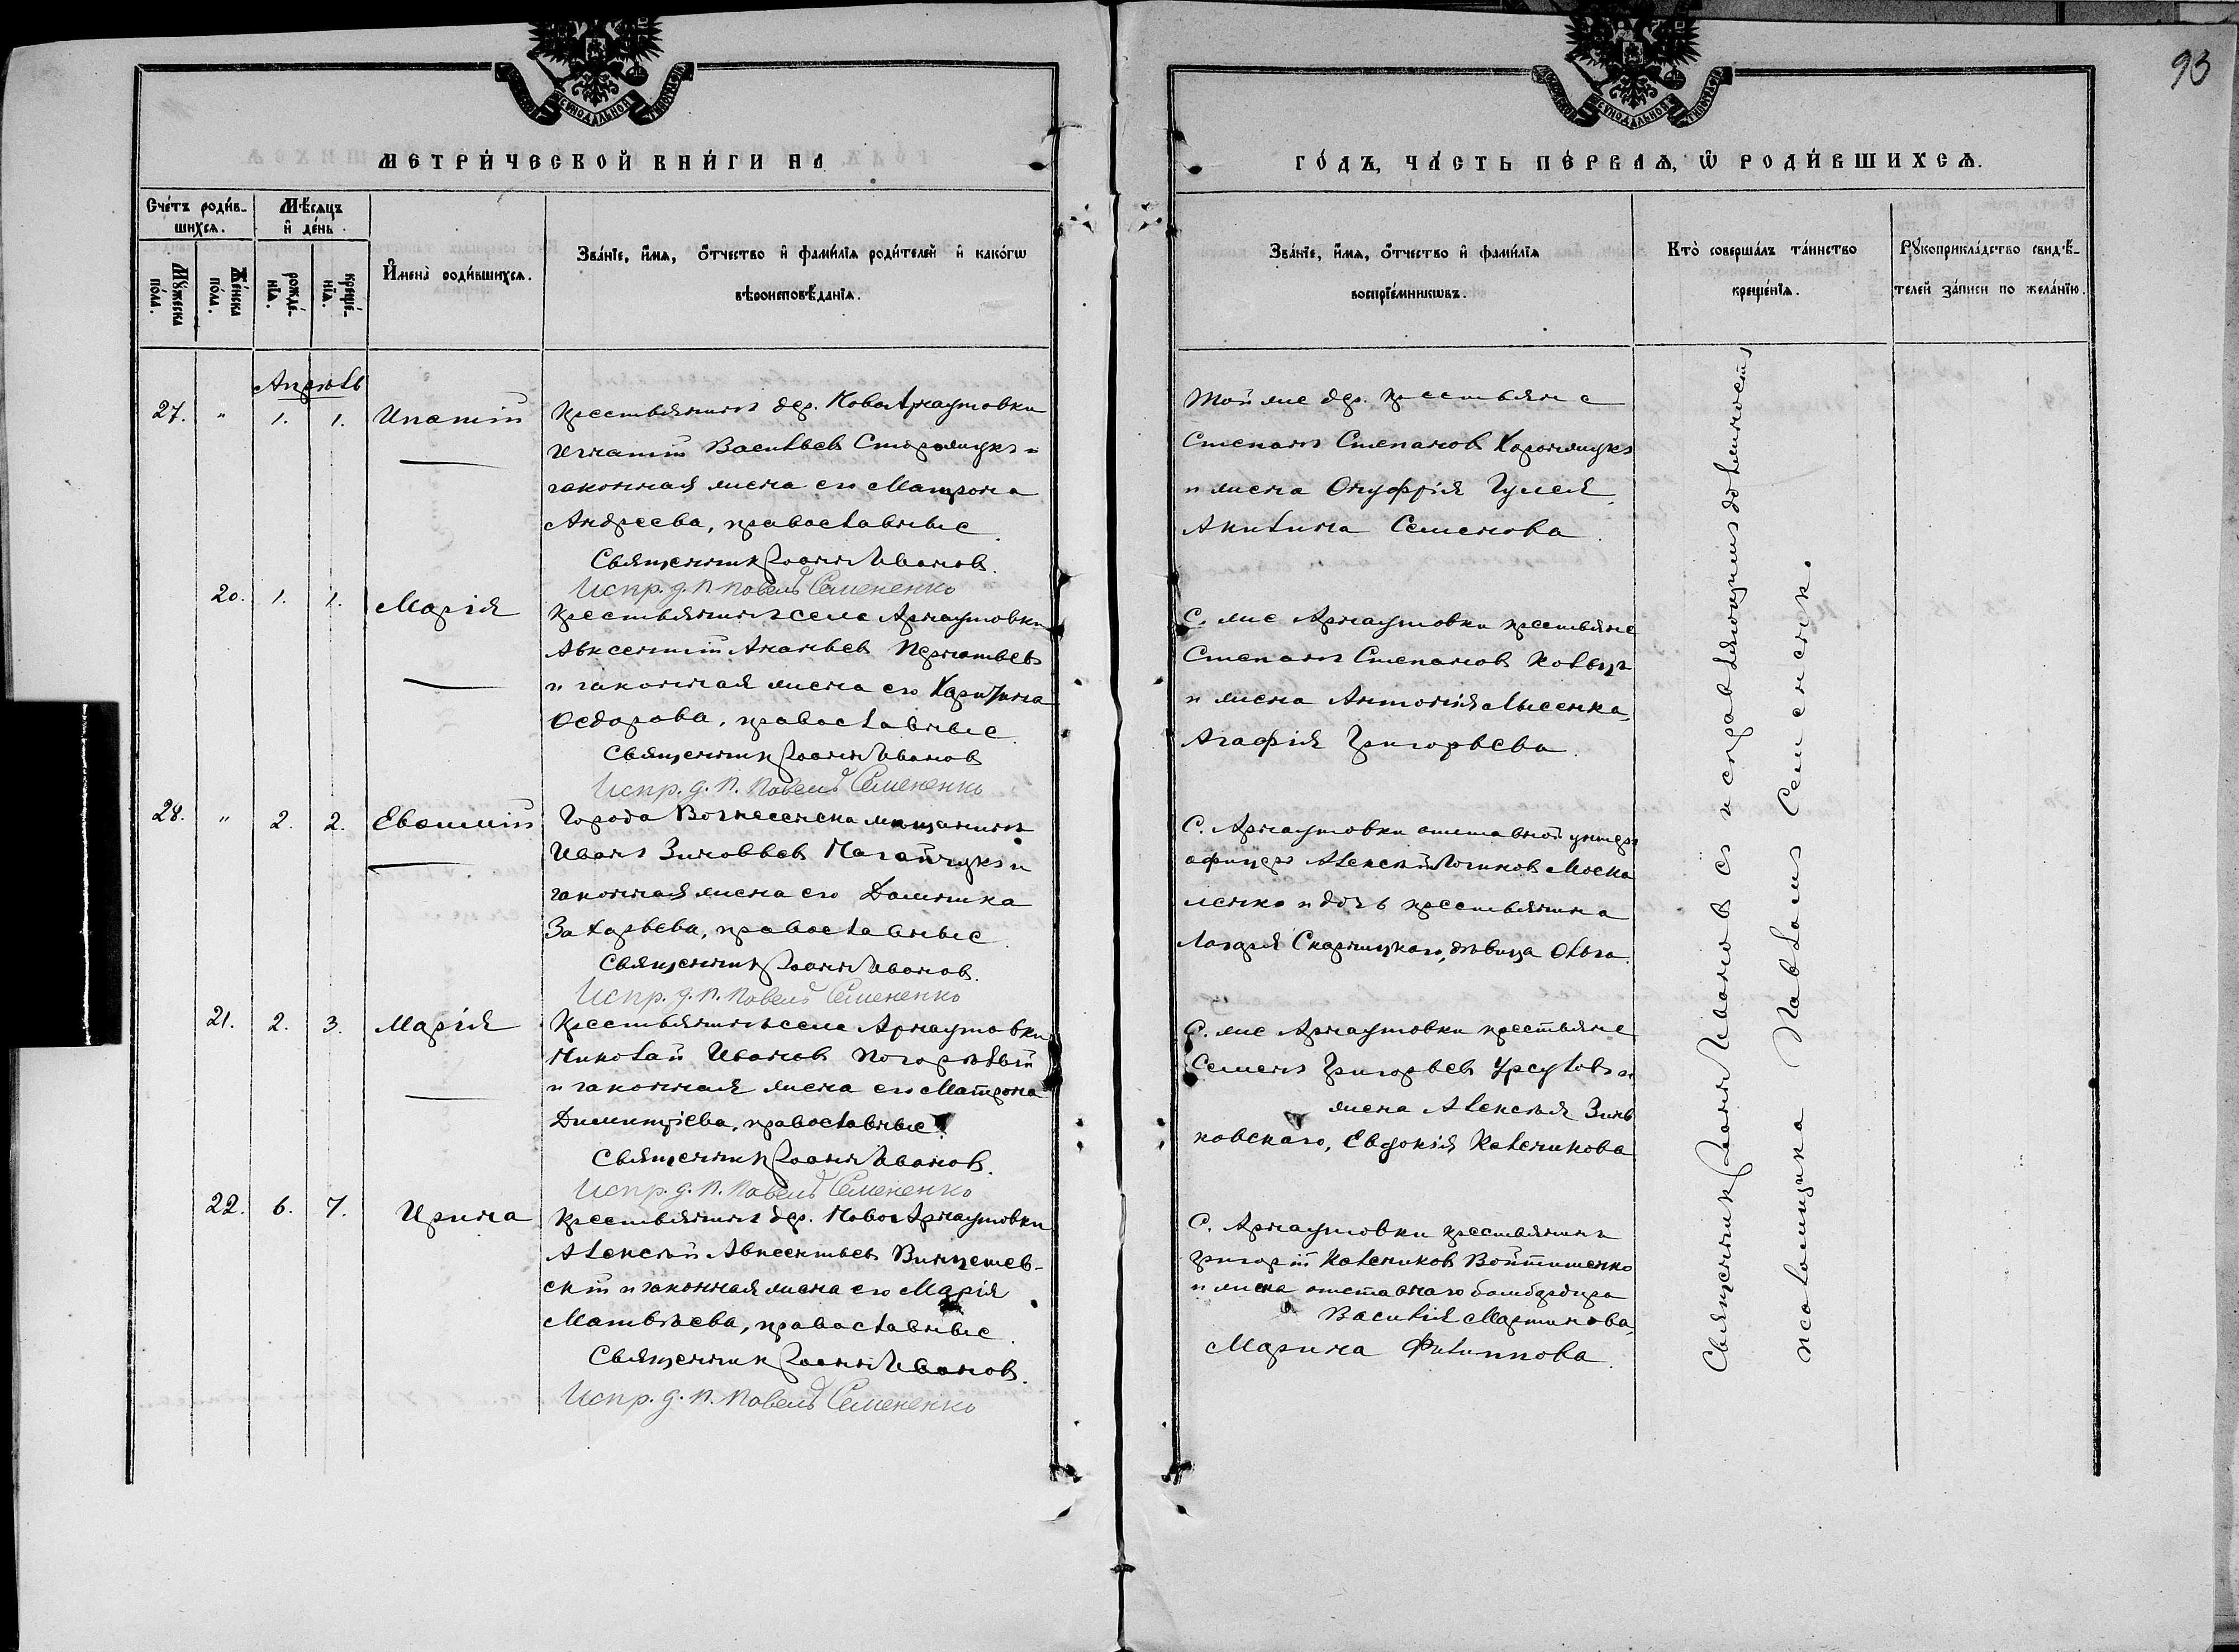 93
МЕТРИ́ЧЕСКОЙ КНИ́ГИ НА
ГО́ДЪ, ЧА́СТЬ ПЕ́РВАѦ, Ѡ҆ РОДИ́ВШИХСѦ.
Сче́тъ роди́в-
шихсѧ.
Мѣ́сѧцъ
и҆ де́нь.
Мꙋ́жеска
по́ла.
Же́нска
по́ла.
рожде́-
нїѧ.
креще́-
нїѧ.
И҆мена̀ роди́вшихсѧ.
Зва́нїе, и҆́мѧ, ѻ҆́тчество и҆ фами́лїѧ роди́телей и҆ како́гѡ
вѣ́роисповѣ́данїѧ.
Зва́нїе, и҆́мѧ, ѻ҆́тчество и҆ фами́лїѧ
воспрїе́мникѡвъ.
Кто̀ соверша́лъ та́инство
креще́нїѧ.
Рꙋкоприкла́дство свидѣ́-
телей за́писи по жела́нїю.
Апрѣль
27. " 1. 1. Ипатій
Крестьянинъ дер. НовоАрнаутовки
Игнатій Васильевъ Сторожукъ и
законная жена его Матрона
Андреева, православные.
Священникъ Іоаннъ Ивановъ.
Испр. д. п. Павелъ Семененко
Той же дер. крестьяне
Степанъ Степановъ
и жена Онуфрія Гулея,
Акилина Семенова.
20. 1. 1. Марія
Крестьянинъ села Арнаутовки
Авксентій Ананьевъ
и законная жена его Харитина
Ѳедорова, православные.
Священникъ Іоаннъ Ивановъ
Испр. д. п. Павелъ Семененко
С. же Арнаутовки крестьяне
Степанъ Степановъ
и жена Антонія Лысенка,
Агафія Григорьева.
28. " 2. 2. Евѳимій
Города Вознесенска мѣщанинъ
Иванъ Зиновьевъ Нагайчукъ и
законная жена его Домника
Захарьева, православные.
Священникъ Іоаннъ Ивановъ.
Испр. д. п. Павелъ Семененко
С. Арнаутовки отставной унтеръ
офицеръ Алексѣй Логиновъ Моска
ленко и дочь крестьянина
Лазаря Скарницкаго, дѣвица Ольга.
21. 2. 3. Марія
Крестьянинъ села Арнаутовки
Николай Ивановъ Погорѣлый
и законная жена его Матрона
Димитріева, православные.
Священникъ Іоаннъ Ивановъ.
Испр. д. п. Павелъ Семененко
С. же Арнаутовки крестьяне
Семенъ Григорьевъ Урсуловъ и
жена Алексѣя Зинь
ковскаго, Евдокія Каленикова
22. 6. 7. Ирина
Крестьянинъ дер. НовоАрнаутовки
Алексѣй Авксентьевъ Винцешев-
скій и законная жена его Марія
Матвѣева, православные.
Священникъ Іоаннъ Ивановъ.
Испр. д. п. Павелъ Семененко
С. Арнаутовки крестьянинъ
Григорій Калениковъ Войтишенко
и жена отставнаго бомбардира
Василія Мартинова,
Марина Филиппова.
Священникъ Іоаннъ Ивановъ съ исправляющимъ должность
псаломщика Павломъ Семененк.